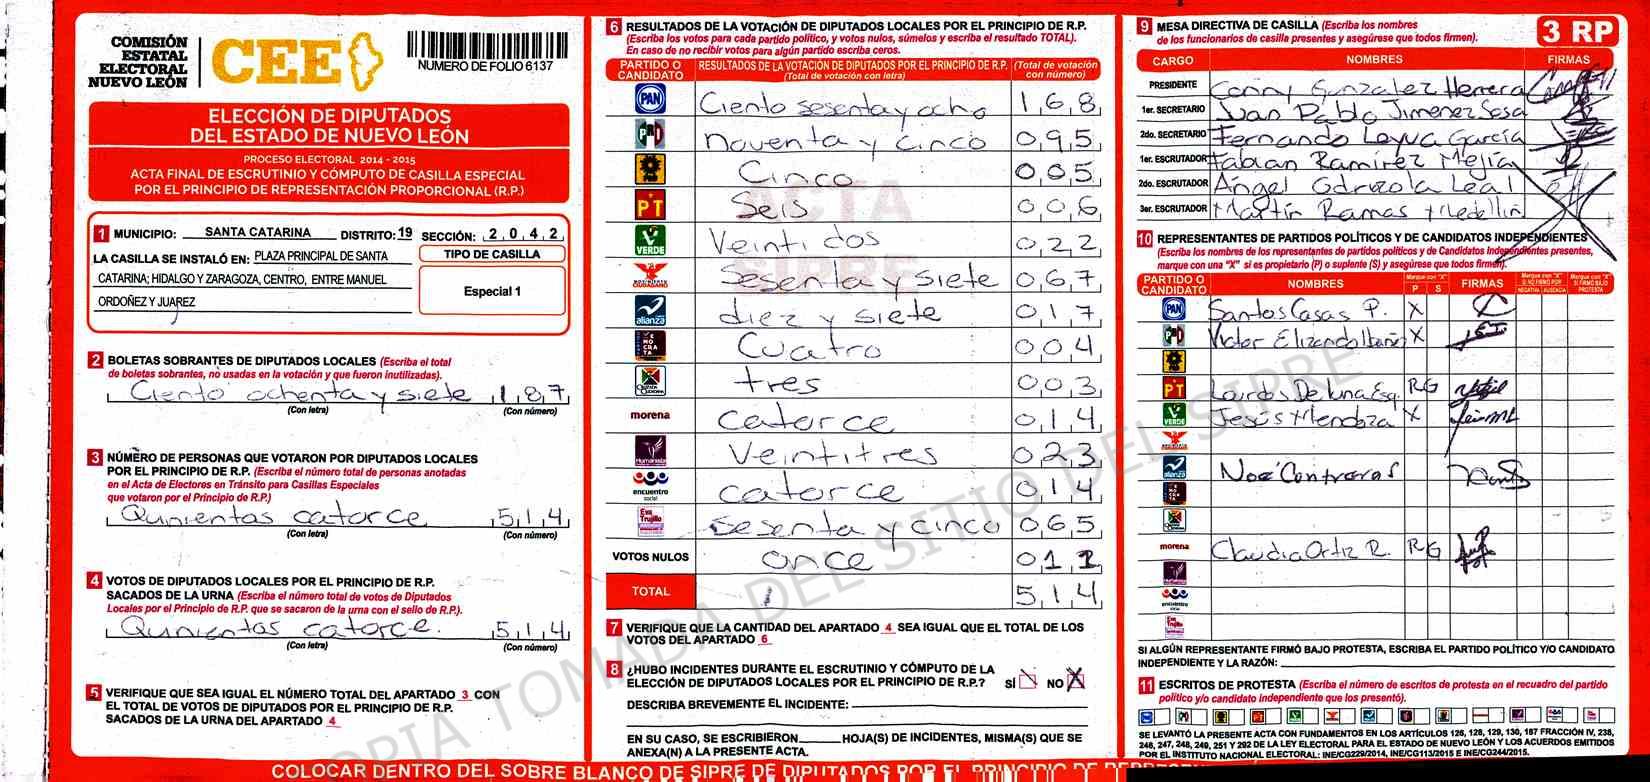 COMISIÓN
ESTATAL
ELECTORAL
NUEVO LEÓN
CEE
NUMERO DE FOLIO 6137
ELECCIÓN DE DIPUTADOS
DEL ESTADO DE NUEVO LEÓN
PROCESO ELECTORAL 2014 - 2015
ACTA FINAL DE ESCRUTINIO Y CÓMPUTO DE CASILLA ESPECIAL
POR EL PRINCIPIO DE REPRESENTACIÓN PROPORCIONAL (R.P.)
1 MUNICIPIO: SANTA CATARINA DISTRITO: 19 SECCIÓN: 2,0,4,2
LA CASILLA SE INSTALÓ EN: PLAZA PRINCIPAL DE SANTA
CATARINA; HIDALGO Y ZARAGOZA, CENTRO, ENTRE MANUEL
ORDOÑEZ Y JUAREZ
TIPO DE CASILLA
Especial 1
2 BOLETAS SOBRANTES DE DIPUTADOS LOCALES (Escriba el total
de boletas sobrantes, no usadas en la votación y que fueron inutilizadas).
Ciento ochenta y siete 1,8,7
(Con letra) (Con número)
3 NÚMERO DE PERSONAS QUE VOTARON POR DIPUTADOS LOCALES
POR EL PRINCIPIO DE R.P. (Escriba el número total de personas anotadas
en el Acta de Electores en Tránsito para Casillas Especiales
que votaron por el Principio de R.P.)
Quinientos catorce 5,1,4
(Con letra) (Con número)
4 VOTOS DE DIPUTADOS LOCALES POR EL PRINCIPIO DE R.P.
SACADOS DE LA URNA (Escriba el número total de votos de Diputados
Locales por el Principio de R.P. que se sacaron de la urna con el sello de R.P.).
Quinientos catorce. 5,1,4
(Con letra) (Con número)
5 VERIFIQUE QUE SEA IGUAL EL NÚMERO TOTAL DEL APARTADO 3 CON
EL TOTAL DE VOTOS DE DIPUTADOS POR EL PRINCIPIO DE R.P.
SACADOS DE LA URNA DEL APARTADO 4
6 RESULTADOS DE LA VOTACIÓN DE DIPUTADOS LOCALES POR EL PRINCIPIO DE R.P.
(Escriba los votos para cada partido político, y votos nulos, súmelos y escriba el resultado TOTAL).
En caso de no recibir votos para algún partido escriba ceros.
PARTIDO O CANDIDATO
RESULTADOS DE LA VOTACIÓN DE DIPUTADOS POR EL PRINCIPIO DE R.P.
(Total de votación con letra)
(Total de votación con número)
PAN Ciento sesenta y ocho 1,6,8
PRD Noventa y cinco 0,9,5
Cinco 0,0,5
PT Seis 0,0,6
VERDE Veinti dos 0,2,2
Sesenta y siete 0,6,7
alianza diez y siete 0,1,7
Cuatro 0,0,4
tres 0,0,3
morena catorce 0,1,4
Humanista Veintitres 0,2,3
encuentro social catorce 0,1,4
Eva Trujillo sesenta y cinco 0,6,5
VOTOS NULOS once 0,1,1
TOTAL 5,1,4
7 VERIFIQUE QUE LA CANTIDAD DEL APARTADO 4 SEA IGUAL QUE EL TOTAL DE LOS
VOTOS DEL APARTADO 6
8 ¿HUBO INCIDENTES DURANTE EL ESCRUTINIO Y CÓMPUTO DE LA
ELECCIÓN DE DIPUTADOS LOCALES POR EL PRINCIPIO DE R.P.? SÍ NO X
DESCRIBA BREVEMENTE EL INCIDENTE:
EN SU CASO, SE ESCRIBIERON HOJA(S) DE INCIDENTES, MISMA(S) QUE SE
ANEXA(N) A LA PRESENTE ACTA.
9 MESA DIRECTIVA DE CASILLA (Escriba los nombres
de los funcionarios de casilla presentes y asegúrese que todos firmen).
3 RP
CARGO NOMBRES FIRMAS
PRESIDENTE Conny Gonzalez Herrera
1er. SECRETARIO Juan Pablo Jimenez Sosa
2do. SECRETARIO Fernando Leyva García
1er. ESCRUTADOR Fabian Ramírez Mejia
2do. ESCRUTADOR Angel Garzola Leal
3er. ESCRUTADOR Martín Ramos Medellin
10 REPRESENTANTES DE PARTIDOS POLÍTICOS Y DE CANDIDATOS INDEPENDIENTES
(Escriba los nombres de los representantes de partidos políticos y de Candidatos Independientes presentes,
marque con una "X" si es propietario (P) o suplente (S) y asegúrese que todos firmen).
PARTIDO O CANDIDATO NOMBRES Marque con "X" P S FIRMAS Marque con "X" SI NO FIRMÓ POR NEGATIVA AUSENCIA Marque con "X" SI FIRMÓ BAJO PROTESTA
PAN Santos Casas P. X
Victor Elizondo Ibañez X
PT Lourdes De luna Esq. RG
VERDE Jesus Mendoza X
alianza Noe Contreras
morena Claudia Ortiz R. RG
SI ALGÚN REPRESENTANTE FIRMÓ BAJO PROTESTA, ESCRIBA EL PARTIDO POLÍTICO Y/O CANDIDATO
INDEPENDIENTE Y LA RAZÓN:
11 ESCRITOS DE PROTESTA (Escriba el número de escritos de protesta en el recuadro del partido
político y/o candidato independiente que los presentó).
SE LEVANTÓ LA PRESENTE ACTA CON FUNDAMENTOS EN LOS ARTÍCULOS 126, 128, 129, 130, 187 FRACCIÓN IV, 238,
246, 247, 248, 249, 251 Y 292 DE LA LEY ELECTORAL PARA EL ESTADO DE NUEVO LEÓN Y LOS ACUERDOS EMITIDOS
POR EL INSTITUTO NACIONAL ELECTORAL: INE/CG229/2014, INE/CG113/2015 E INE/CG244/2015.
ACTA SIPRE
COPIA TOMADA DEL SITIO DEL SIPRE
COLOCAR DENTRO DEL SOBRE BLANCO DE SIPRE DE DIPUTADOS POR EL PRINCIPIO DE